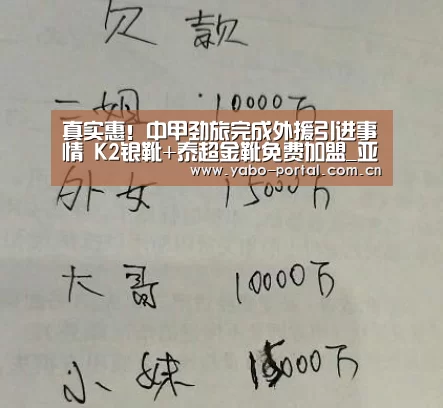 欠款
二姐 10000万
真实惠！中甲劲旅完成外援引进事
情 K2银靴+泰超金靴免费加盟_亚
www.yabo-portal.com.cn
外女 15000万
大哥 10000万
小妹 15000万